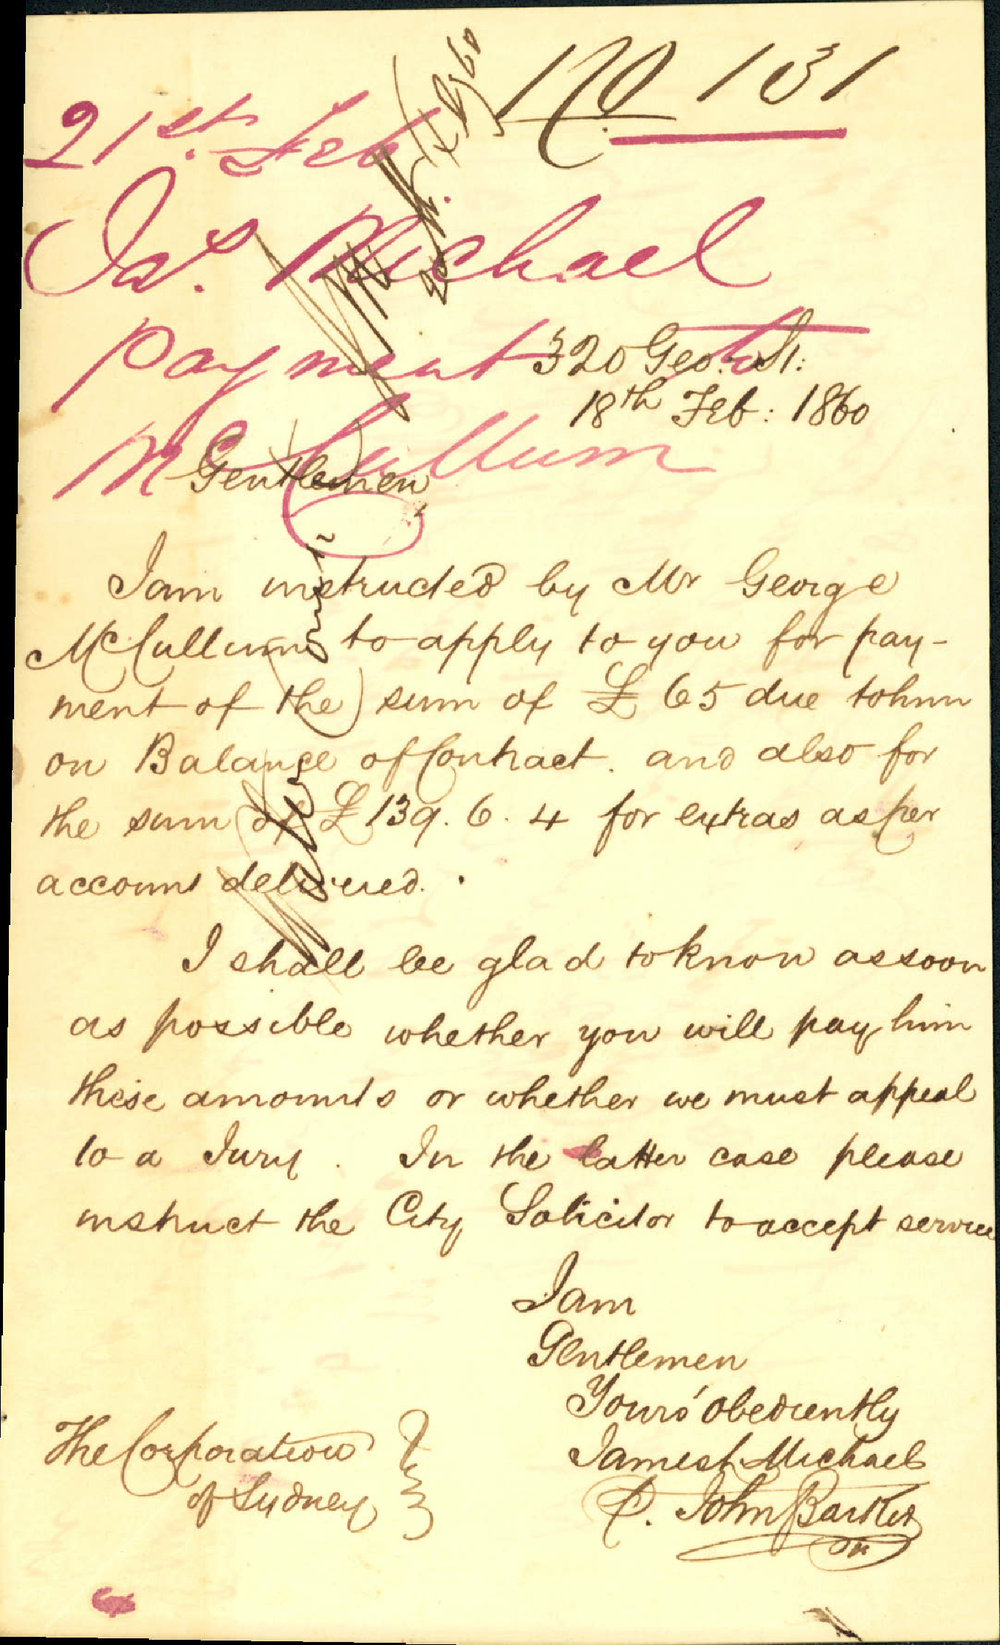 No 131
21st. Feb
Jas. Michael
Payment to
McCullum
320 Geo: St:
18th Feb: 1860
Gentlemen,
I am instructed by Mr George
McCullum to apply to you for pay-
ment of the sum of £65 due to him
on Balance of Contract. and also for
the sum of £139. 6. 4 for extras as per
account delivered.
I shall be glad to know as soon
as possible whether you will pay him
these amounts or whether we must appeal
to a Jury. In the latter case please
instruct the City Solicitor to accept service
I am
Gentlemen
Yours obediently
James L Michael
P. John Barker
The Corporation
of Sydney